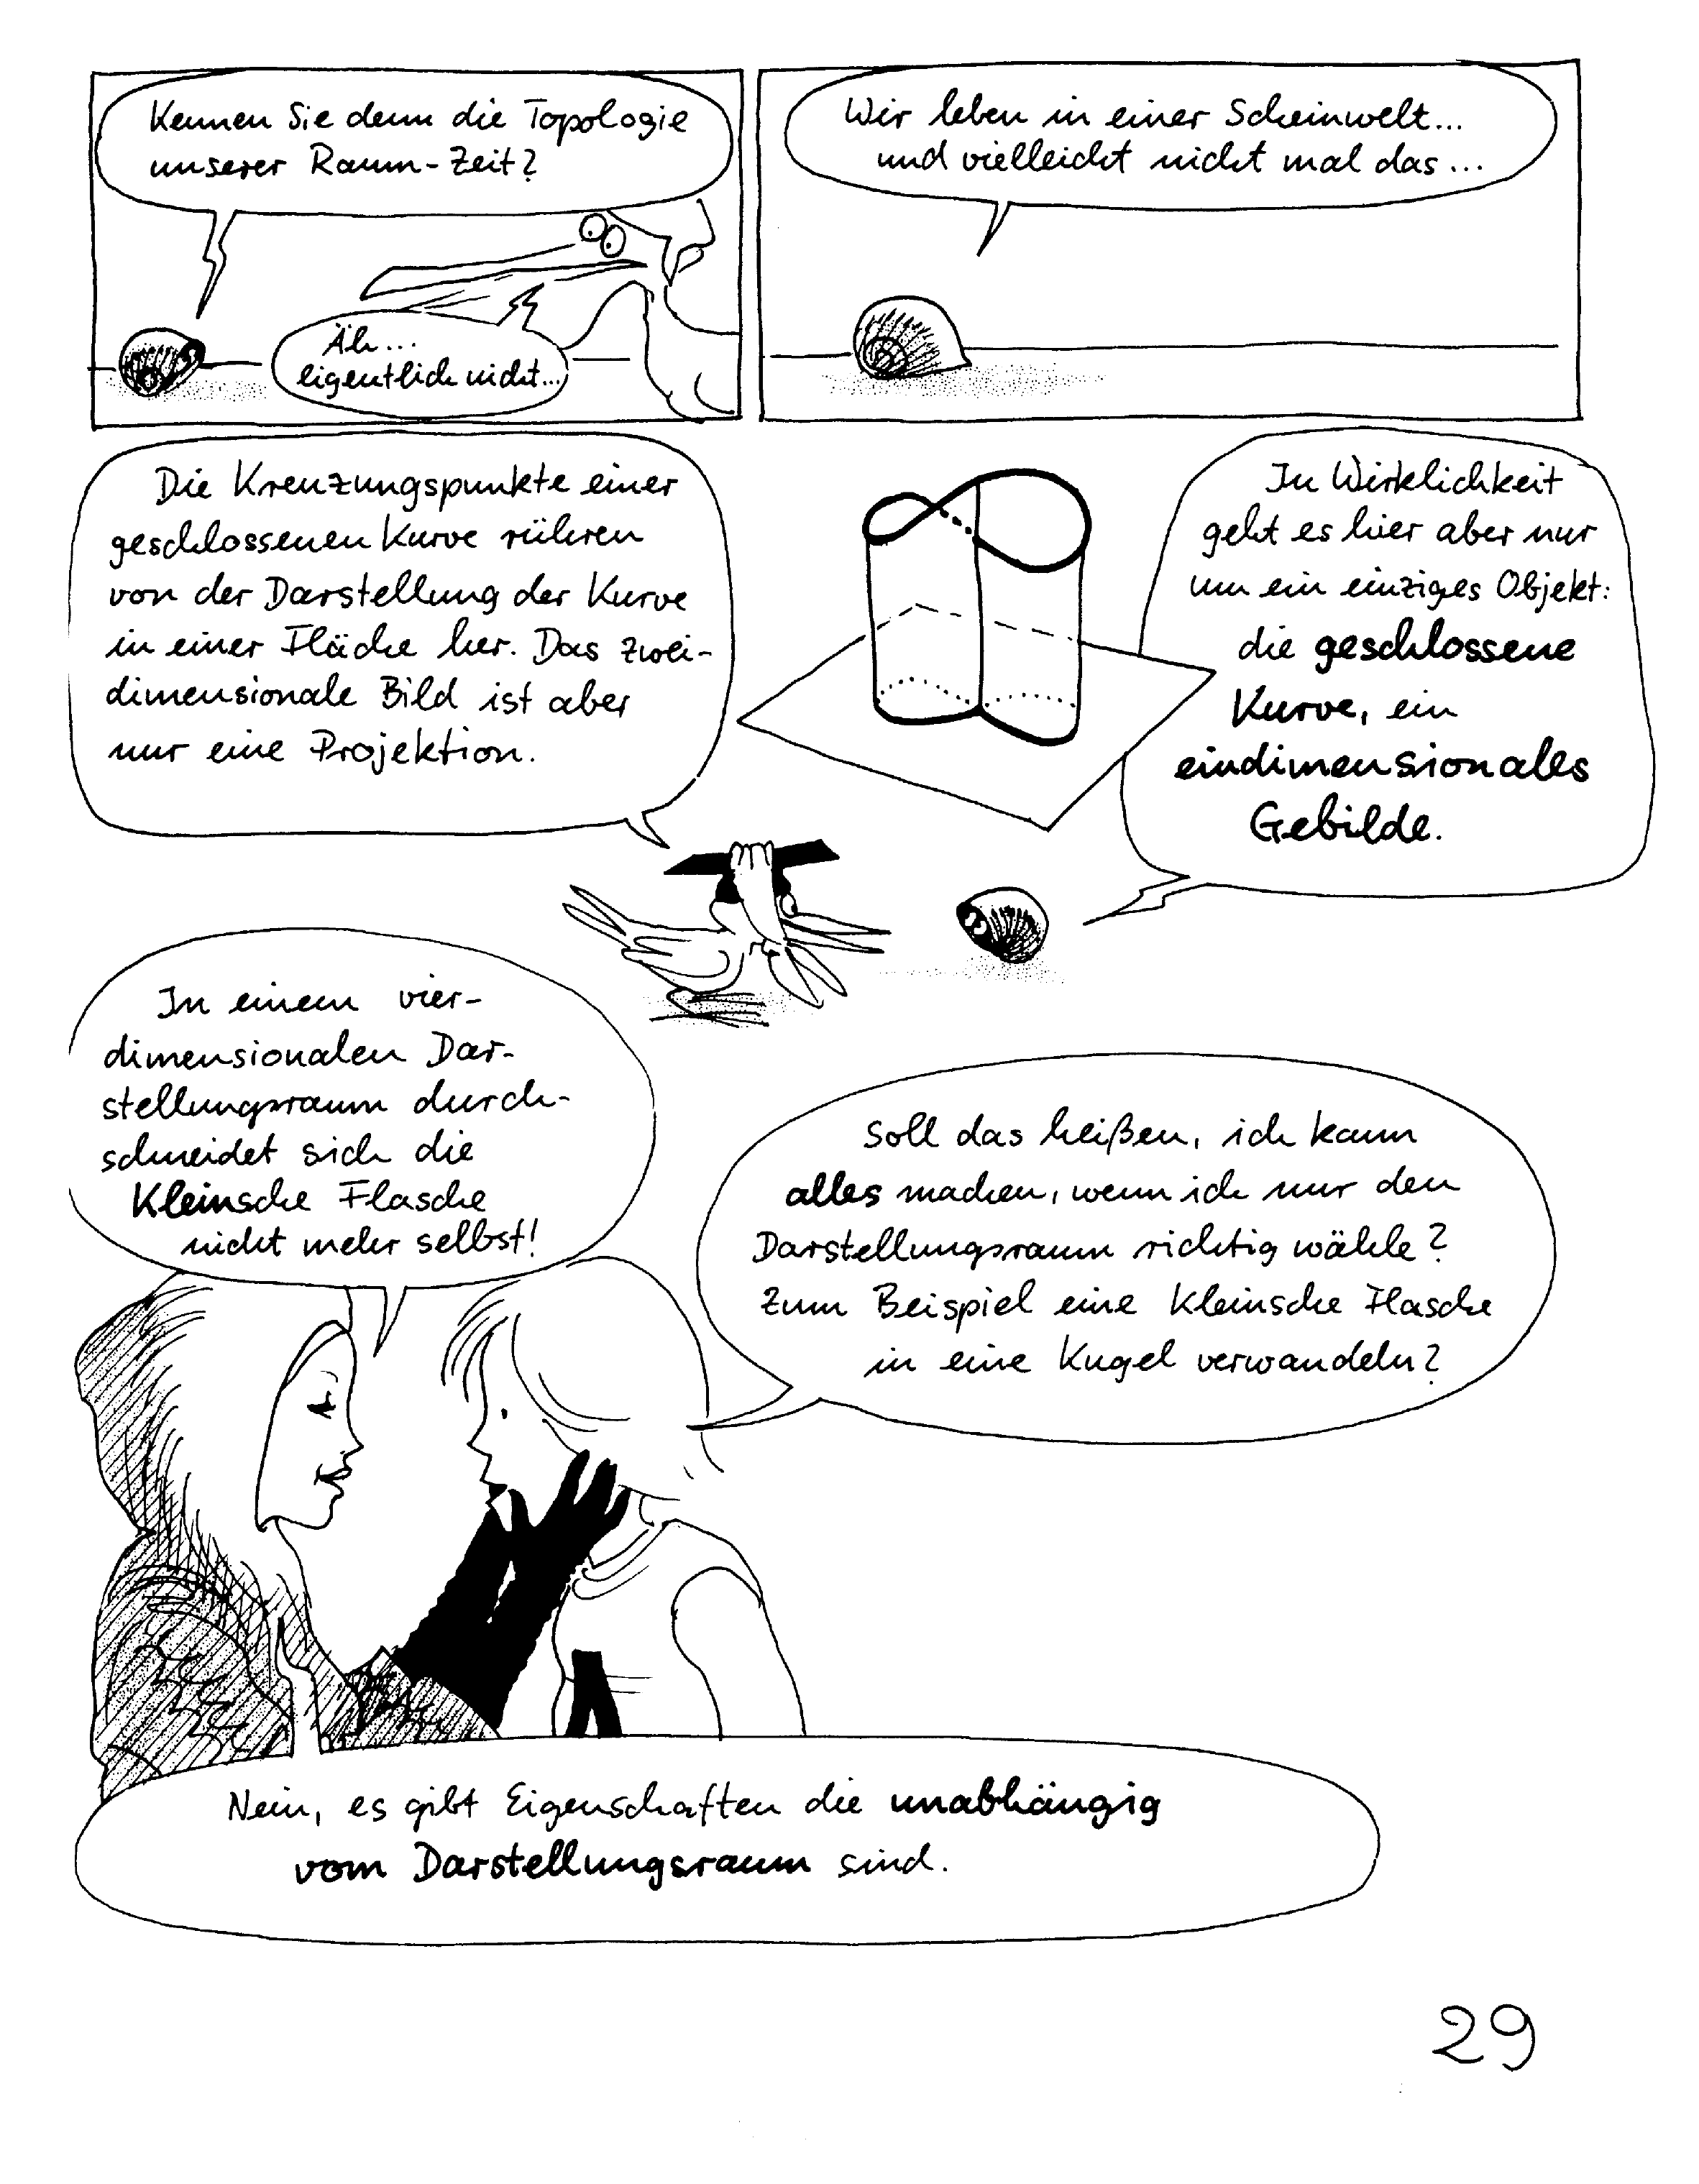 Kennen Sie denn die Topologie
unserer Raum-Zeit?
Äh...
eigentlich nicht...
Wir leben in einer Scheinwelt...
und vielleicht nicht mal das...
Die Kreuzungspunkte einer
geschlossenen Kurve rühren
von der Darstellung der Kurve
in einer Fläche her. Das zwei-
dimensionale Bild ist aber
nur eine Projektion.
In Wirklichkeit
geht es hier aber nur
um ein einziges Objekt:
die geschlossene
Kurve, ein
eindimensionales
Gebilde.
In einem vier-
dimensionalen Dar-
stellungsraum durch-
schneidet sich die
Kleinsche Flasche
nicht mehr selbst!
Soll das heißen, ich kann
alles machen, wenn ich nur den
Darstellungsraum richtig wähle?
Zum Beispiel eine Kleinsche Flasche
in eine Kugel verwandeln?
Nein, es gibt Eigenschaften die unabhängig
vom Darstellungsraum sind.
29